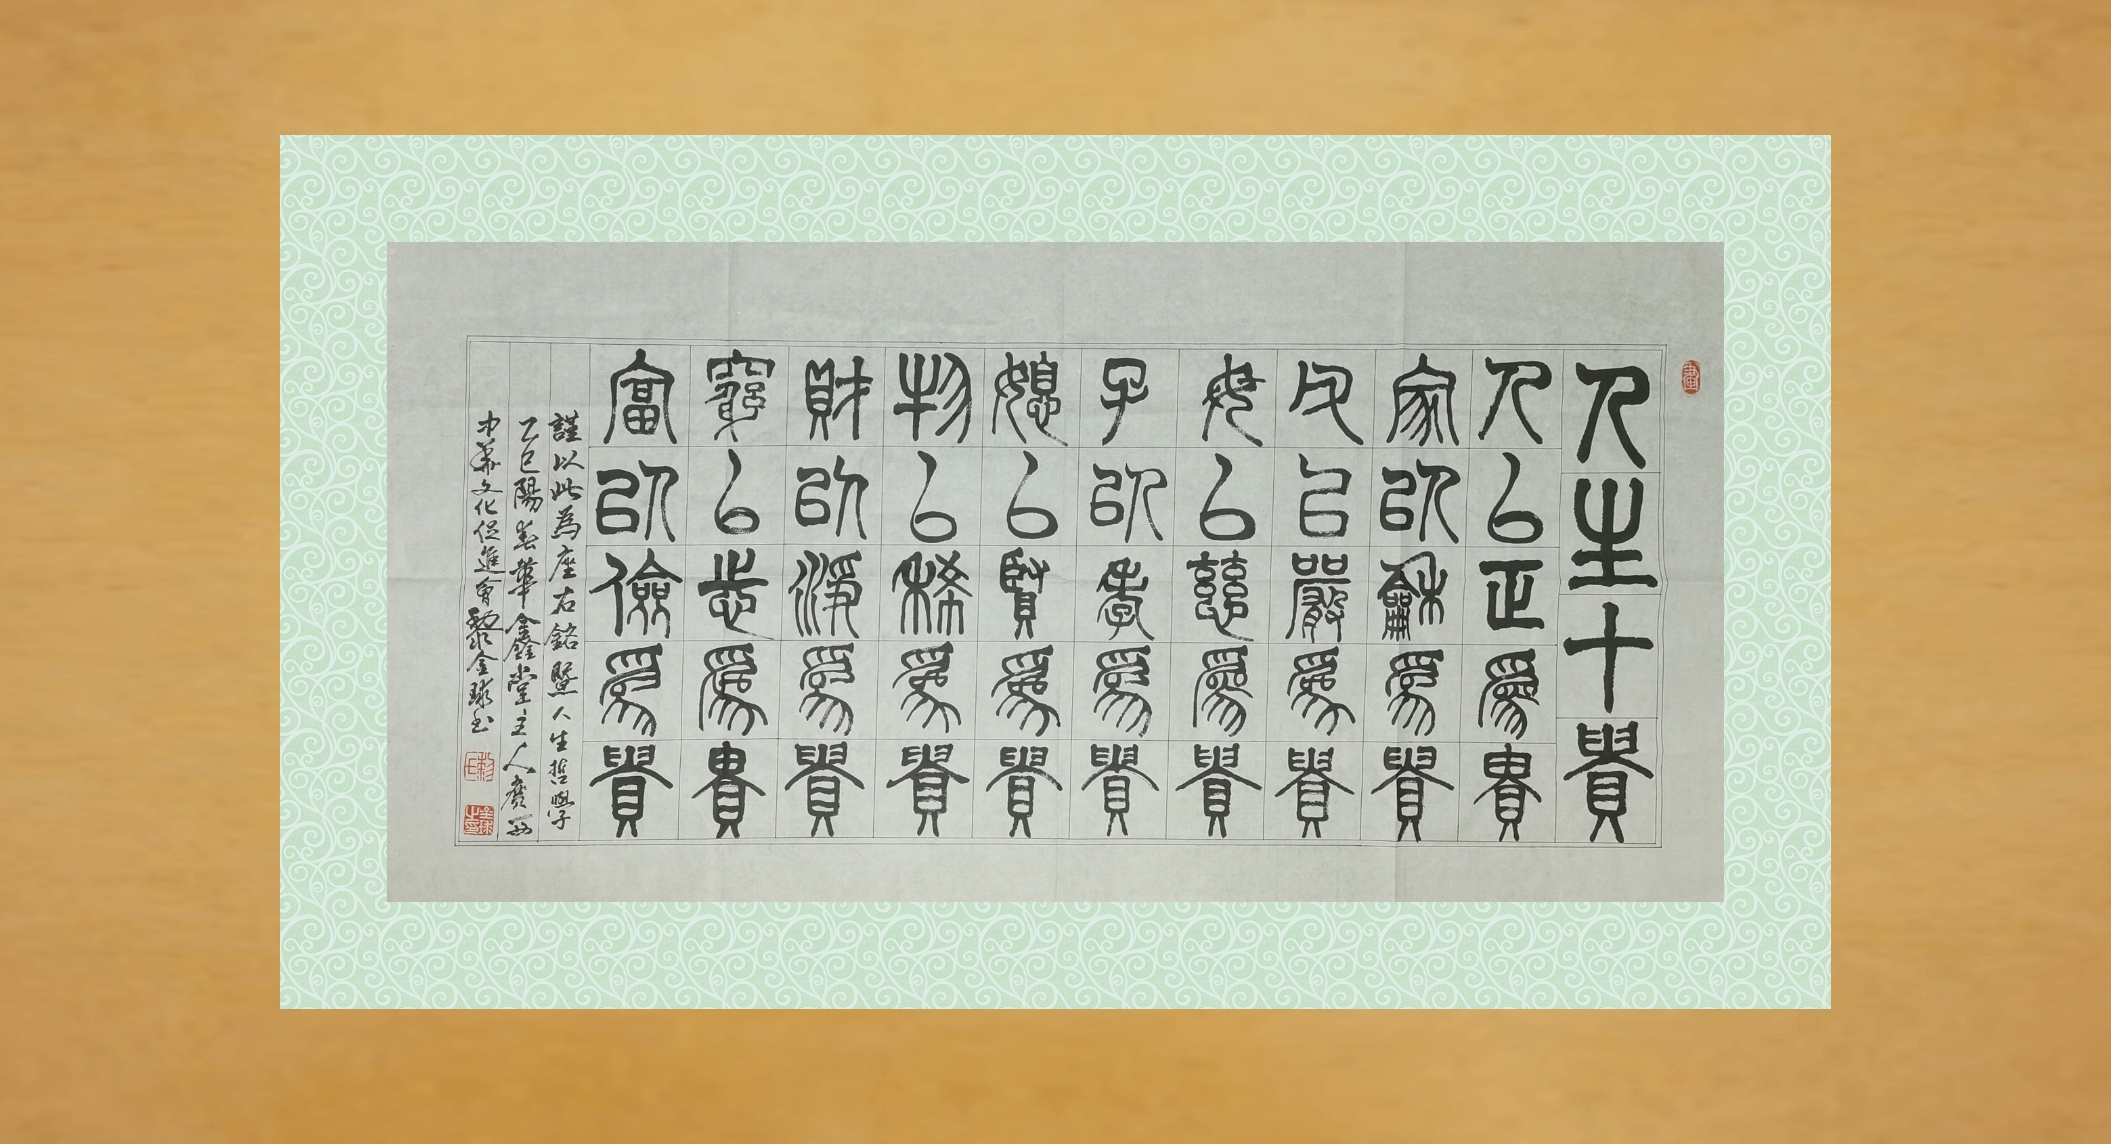 人生十貴
人以正為貴
家以龢為貴
父以嚴為貴
母以慈為貴
子以孝為貴
媳以賢為貴
物以稀為貴
財以淨為貴
窮以志為貴
富以儉為貴
謹以此為座右銘暨人生哲學
乙巳陽春華鑫堂主人廣西
中華文化促進會黎金球書